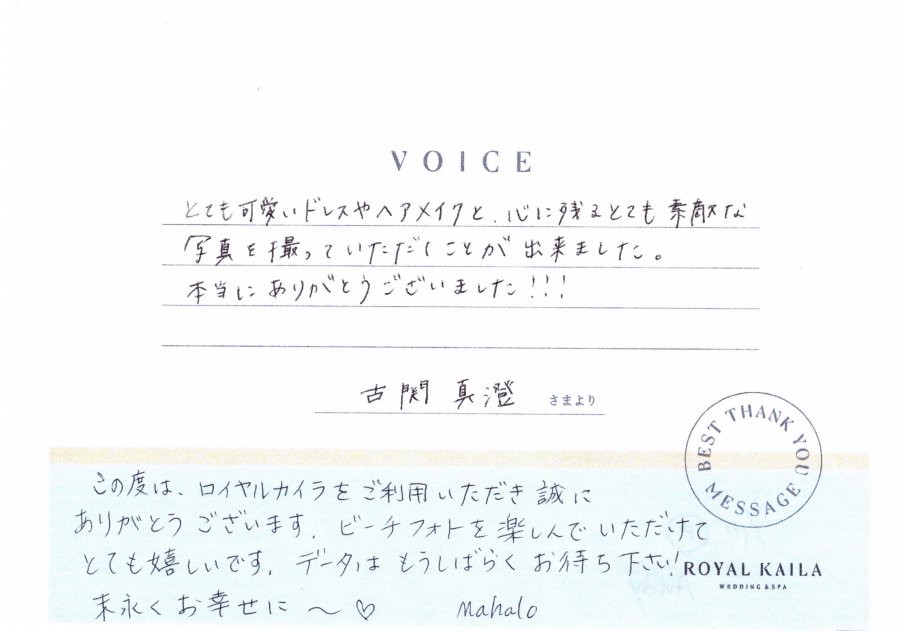 VOICE
とても可愛いドレスやヘアメイクと、心に残るとても素敵な
写真を撮っていただくことが出来ました。
本当にありがとうございました!!!
古関 真澄 さまより
BEST THANK YOU MESSAGE
この度は、ロイヤルカイラをご利用いただき誠に
ありがとうございます。ビーチフォトを楽しんでいただけて
とても嬉しいです。データはもうしばらくお待ち下さい!
末永くお幸せに〜♡ Mahalo
ROYAL KAILA
WEDDING & SPA